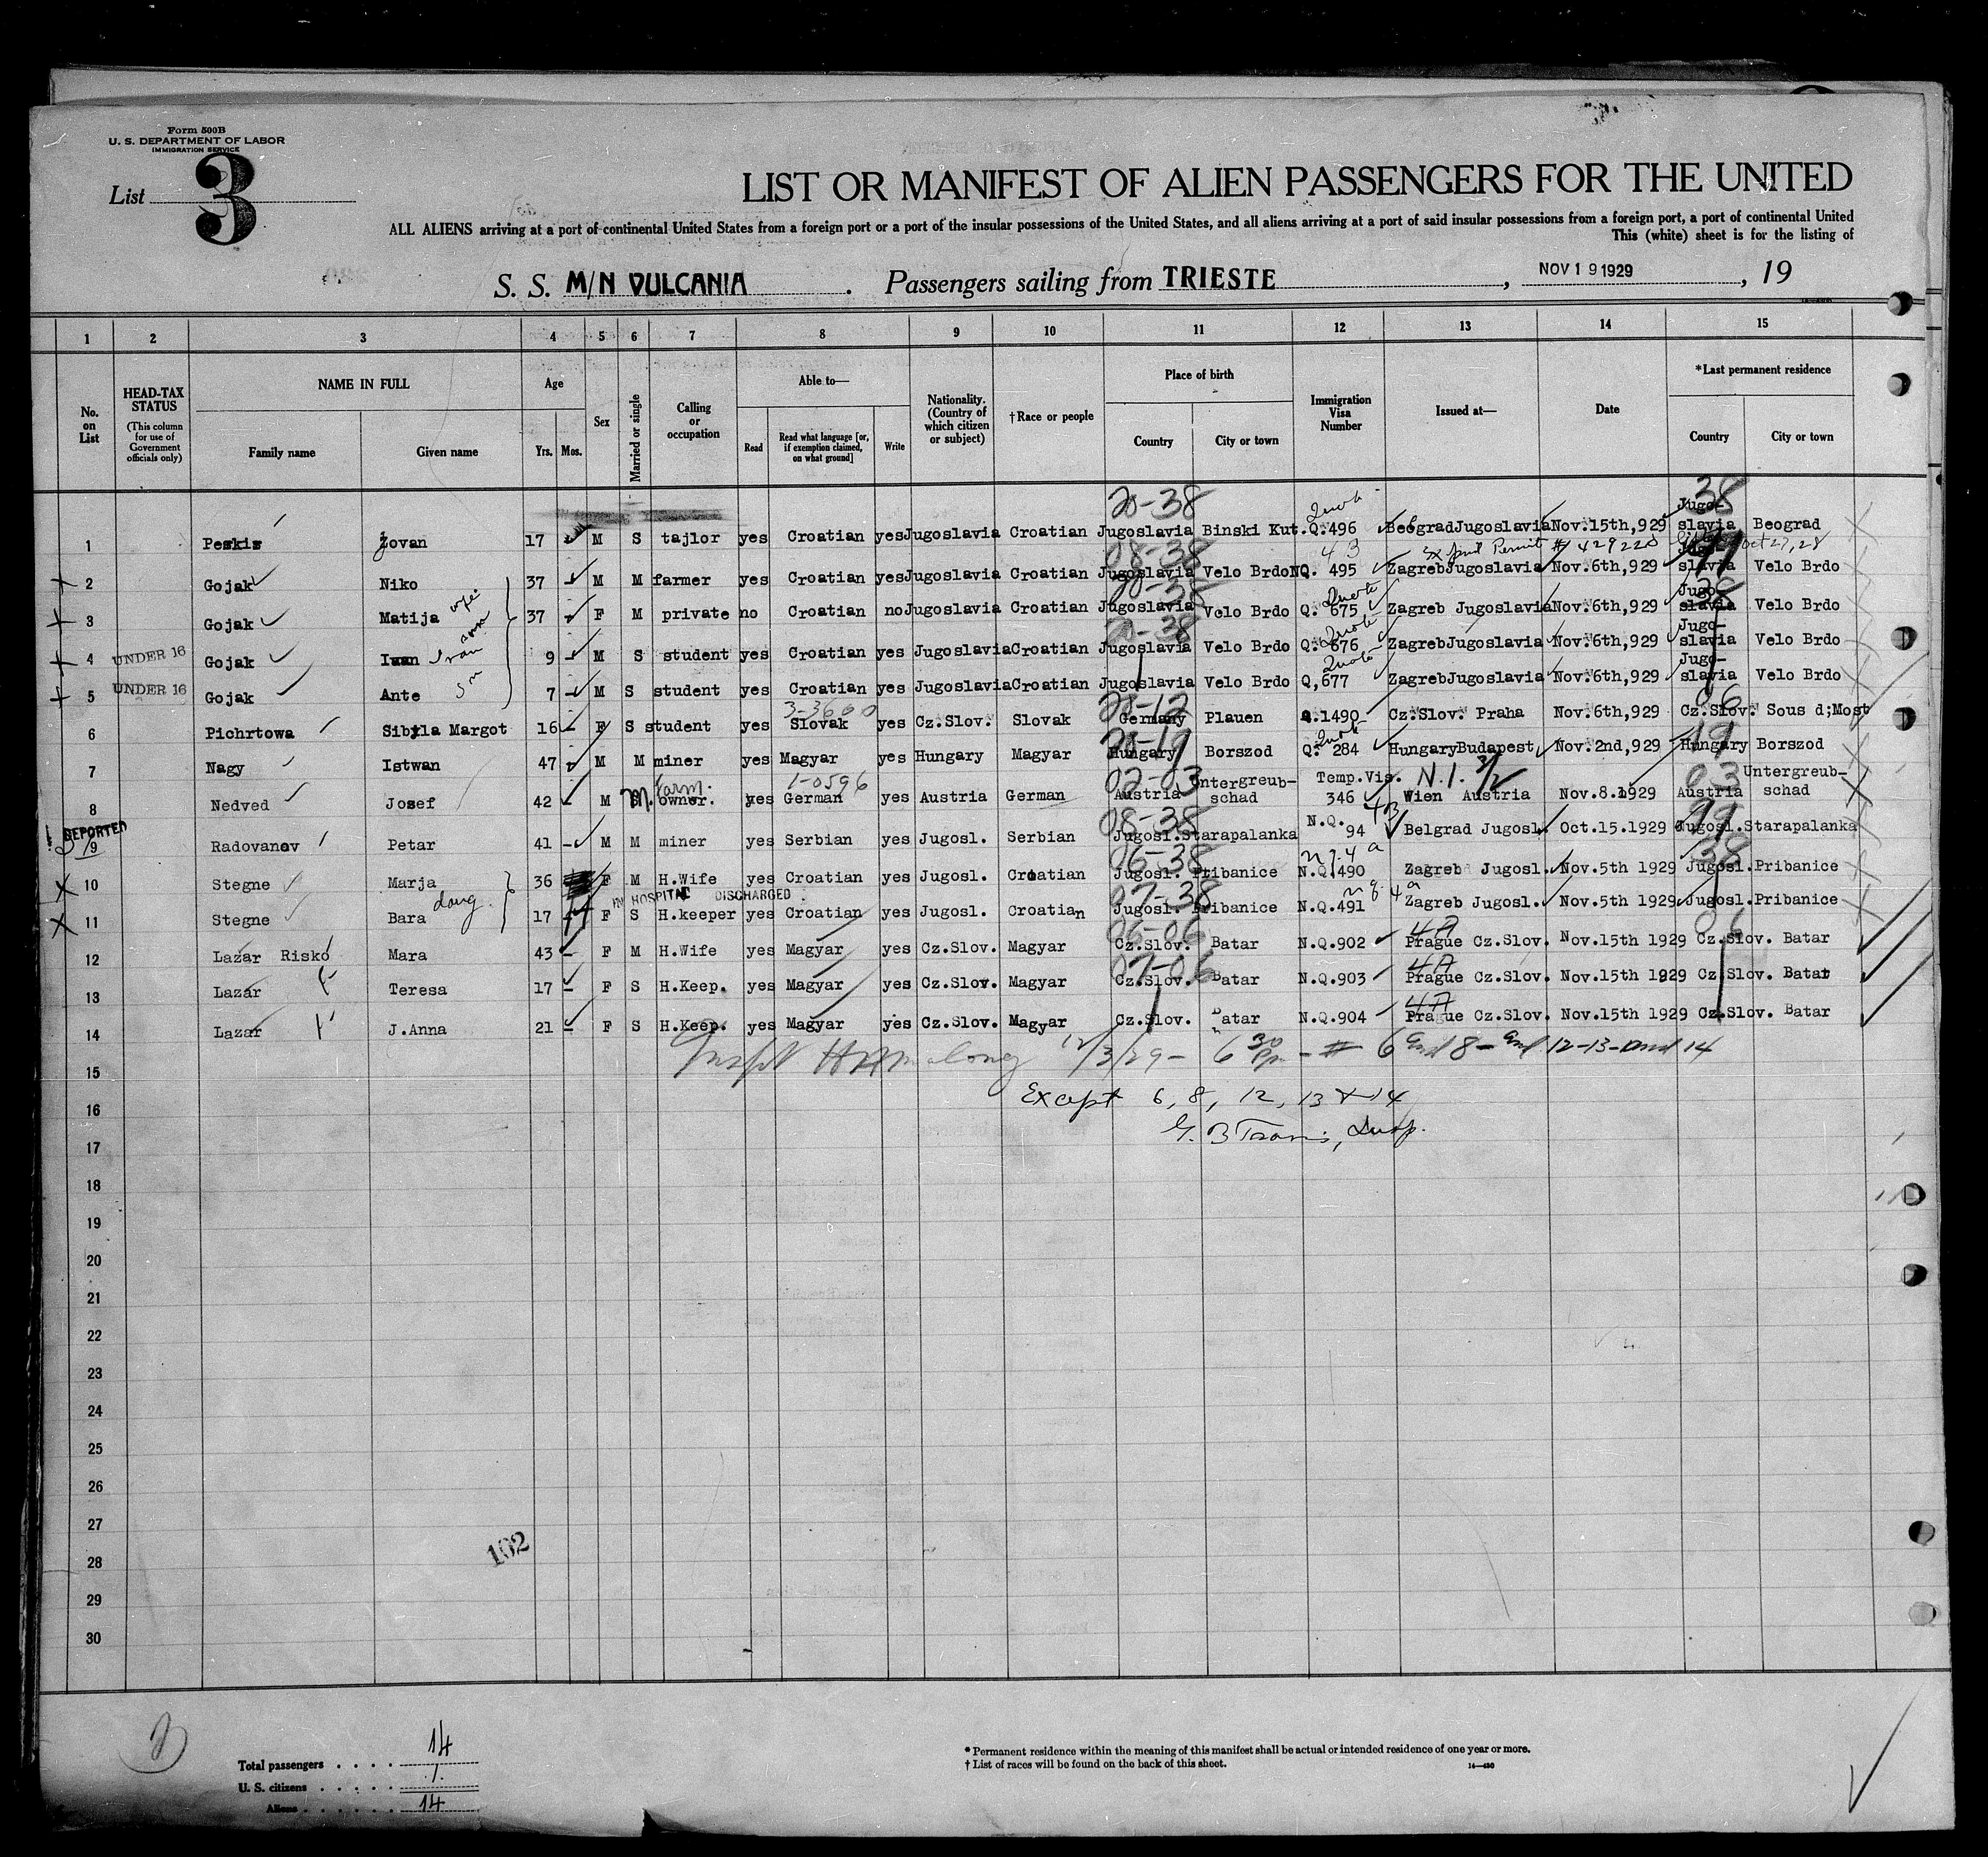 Form 500B
U. S. DEPARTMENT OF LABOR
IMMIGRATION SERVICE
List 3
LIST OR MANIFEST OF ALIEN PASSENGERS FOR THE UNITED
ALL ALIENS arriving at a port of continental United States from a foreign port or a port of the insular possessions of the United States, and all aliens arriving at a port of said insular possessions from a foreign port, a port of continental United
This (white) sheet is for the listing of
S. S. M/N VULCANIA. Passengers sailing from TRIESTE, NOV 19 1929, 19
1 2 3 4 5 6 7 8 9 10 11 12 13 14 15
No. on List
HEAD-TAX STATUS (This column for use of Government officials only)
NAME IN FULL
Family name Given name
Age
Yrs. Mos.
Sex
Married or single
Calling or occupation
Able to—
Read
Read what language [or, if exemption claimed, on what ground]
Write
Nationality. (Country of which citizen or subject)
†Race or people
Place of birth
Country City or town
Immigration Visa Number
Issued at—
Date
*Last permanent residence
Country City or town
20-38 38
1 Peskis Zovan 17 M S tajlor yes Croatian yes Jugoslavia Croatian Jugoslavia Binski Kut. Q.496 Beograd Jugoslavia Nov.15th,929 Jugo-slavia Beograd
08-38 4 3 Permit # 429220 Oct 27, 28
2 Gojak Niko 37 M M farmer yes Croatian yes Jugoslavia Croatian Jugoslavia Velo Brdo NQ. 495 Zagreb Jugoslavia Nov.6th,929 slavia Velo Brdo
20-38 Quota 38
3 Gojak Matija wife 37 F M private no Croatian no Jugoslavia Croatian Jugoslavia Velo Brdo Q. 675 Zagreb Jugoslavia Nov.6th,929 Jugo-slavia Velo Brdo
20-38 Quota
4 UNDER 16 Gojak Iwan Ivan son 9 M S student yes Croatian yes Jugoslavia Croatian Jugoslavia Velo Brdo Q. 676 Zagreb Jugoslavia Nov.6th,929 Jugo-slavia Velo Brdo
Quota
5 UNDER 16 Gojak Ante Son 7 M S student yes Croatian yes Jugoslavia Croatian Jugoslavia Velo Brdo Q,677 Zagreb Jugoslavia Nov.6th,929 Jugo-slavia Velo Brdo
3-3600 20-12 06
6 Pichrtowa Sibyla Margot 16 F S student yes Slovak yes Cz.Slov. Slovak Germany Plauen Q.1490 Cz.Slov. Praha Nov.6th,929 Cz.Slov. Sous d;Most
20-19 Quota 19
7 Nagy Istwan 47 M M miner yes Magyar yes Hungary Magyar Hungary Borszod Q. 284 Hungary Budapest Nov.2nd,929 Hungary Borszod
farm. 1-0596 02-03 N.I. 3/2 03
8 Nedved Josef 42 M M. owner. yes German yes Austria German Austria Untergreub-schad Temp.Vis. 346 Wien Austria Nov.8.1929 Austria Untergreub-schad
DEPORTED 08-38 4B 99
9 Radovanov Petar 41 M M miner yes Serbian yes Jugosl. Serbian Jugosl. Starapalanka N.Q. 94 Belgrad Jugosl. Oct.15.1929 Jugosl. Starapalanka
06-38 38
10 Stegne Marja 36 F M H.Wife yes Croatian yes Jugosl. Croatian Jugosl. Pribanice N.Q.490 Zagreb Jugosl. Nov.5th 1929 Jugosl. Pribanice
IN HOSPITAL DISCHARGED 07-38
11 Stegne Bara daug. 17 F S H.keeper yes Croatian yes Jugosl. Croatian Jugosl. Pribanice N.Q.491 Zagreb Jugosl. Nov.5th 1929 Jugosl. Pribanice
06-06 4A 06
12 Lazar Risko Mara 43 F M H.Wife yes Magyar yes Cz.Slov. Magyar Cz.Slov. Batar N.Q.902 Prague Cz.Slov. Nov.15th 1929 Cz.Slov. Batar
07-06 4A
13 Lazar Teresa 17 F S H.Keep. yes Magyar yes Cz.Slov. Magyar Cz.Slov. Batar N.Q.903 Prague Cz.Slov. Nov.15th 1929 Cz.Slov. Batar
4A
14 Lazar J.Anna 21 F S H.Keep. yes Magyar yes Cz.Slov. Magyar Cz.Slov. Batar N.Q.904 Prague Cz.Slov. Nov.15th 1929 Cz.Slov. Batar
12/3/29 - 6 30 Pm - # 6 and 8 - and 12-13-and 14
15
Except 6, 8, 12, 13 & 14
16
17
18
19
20
21
22
23
24
25
26
27
102
28
29
30
Total passengers . . . . 14
U. S. citizens . . . . .
Aliens . . . . . . 14
* Permanent residence within the meaning of this manifest shall be actual or intended residence of one year or more.
† List of races will be found on the back of this sheet.
14—430